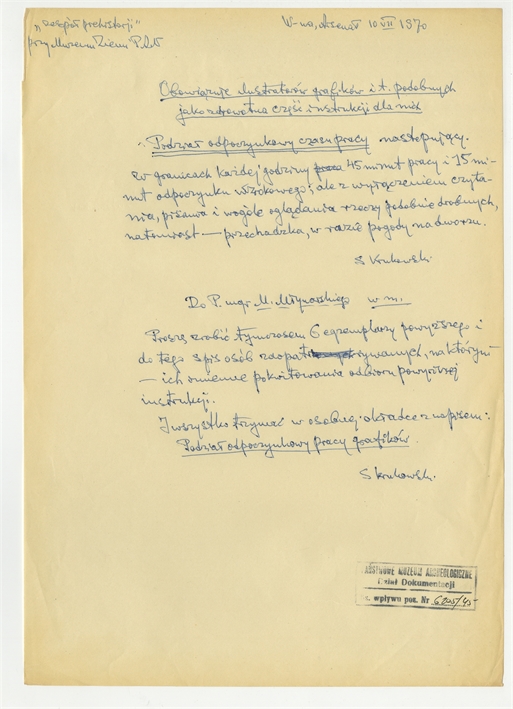 „Zespół prehistorji”
przy Muzeum Ziemi PAN
W-wa, Arsenał 10 VII 1970
Obowiązuje ilustratorów grafików i t. podobnych
jako zdrowotna część instrukcji dla nich
Podział odpoczynkowy czasu pracy następujący.
W granicach każdej godziny 45 minut pracy i 15 mi-
nut odpoczynku wzrokowego; ale z wyłączeniem czyta-
nia, pisania i wogóle oglądania rzeczy podobnie drobnych,
natomiast — przechadzka, w razie pogody na dworzu.
S Krukowski.
Do P. mgr M. Młynarskiego w m.
Proszę zrobić tymczasem 6 egzemplarzy powyższego i
do tego spis osób zaopatrywanych, na którym
— ich imienne pokwitowania odbioru powyższej
instrukcji.
I wszystko trzymać w osobnej okładce z napisem:
Podział odpoczynkowy pracy grafików.
S Krukowski.
PAŃSTWOWE MUZEUM ARCHEOLOGICZNE
Dział Dokumentacji
wpływu poz. Nr